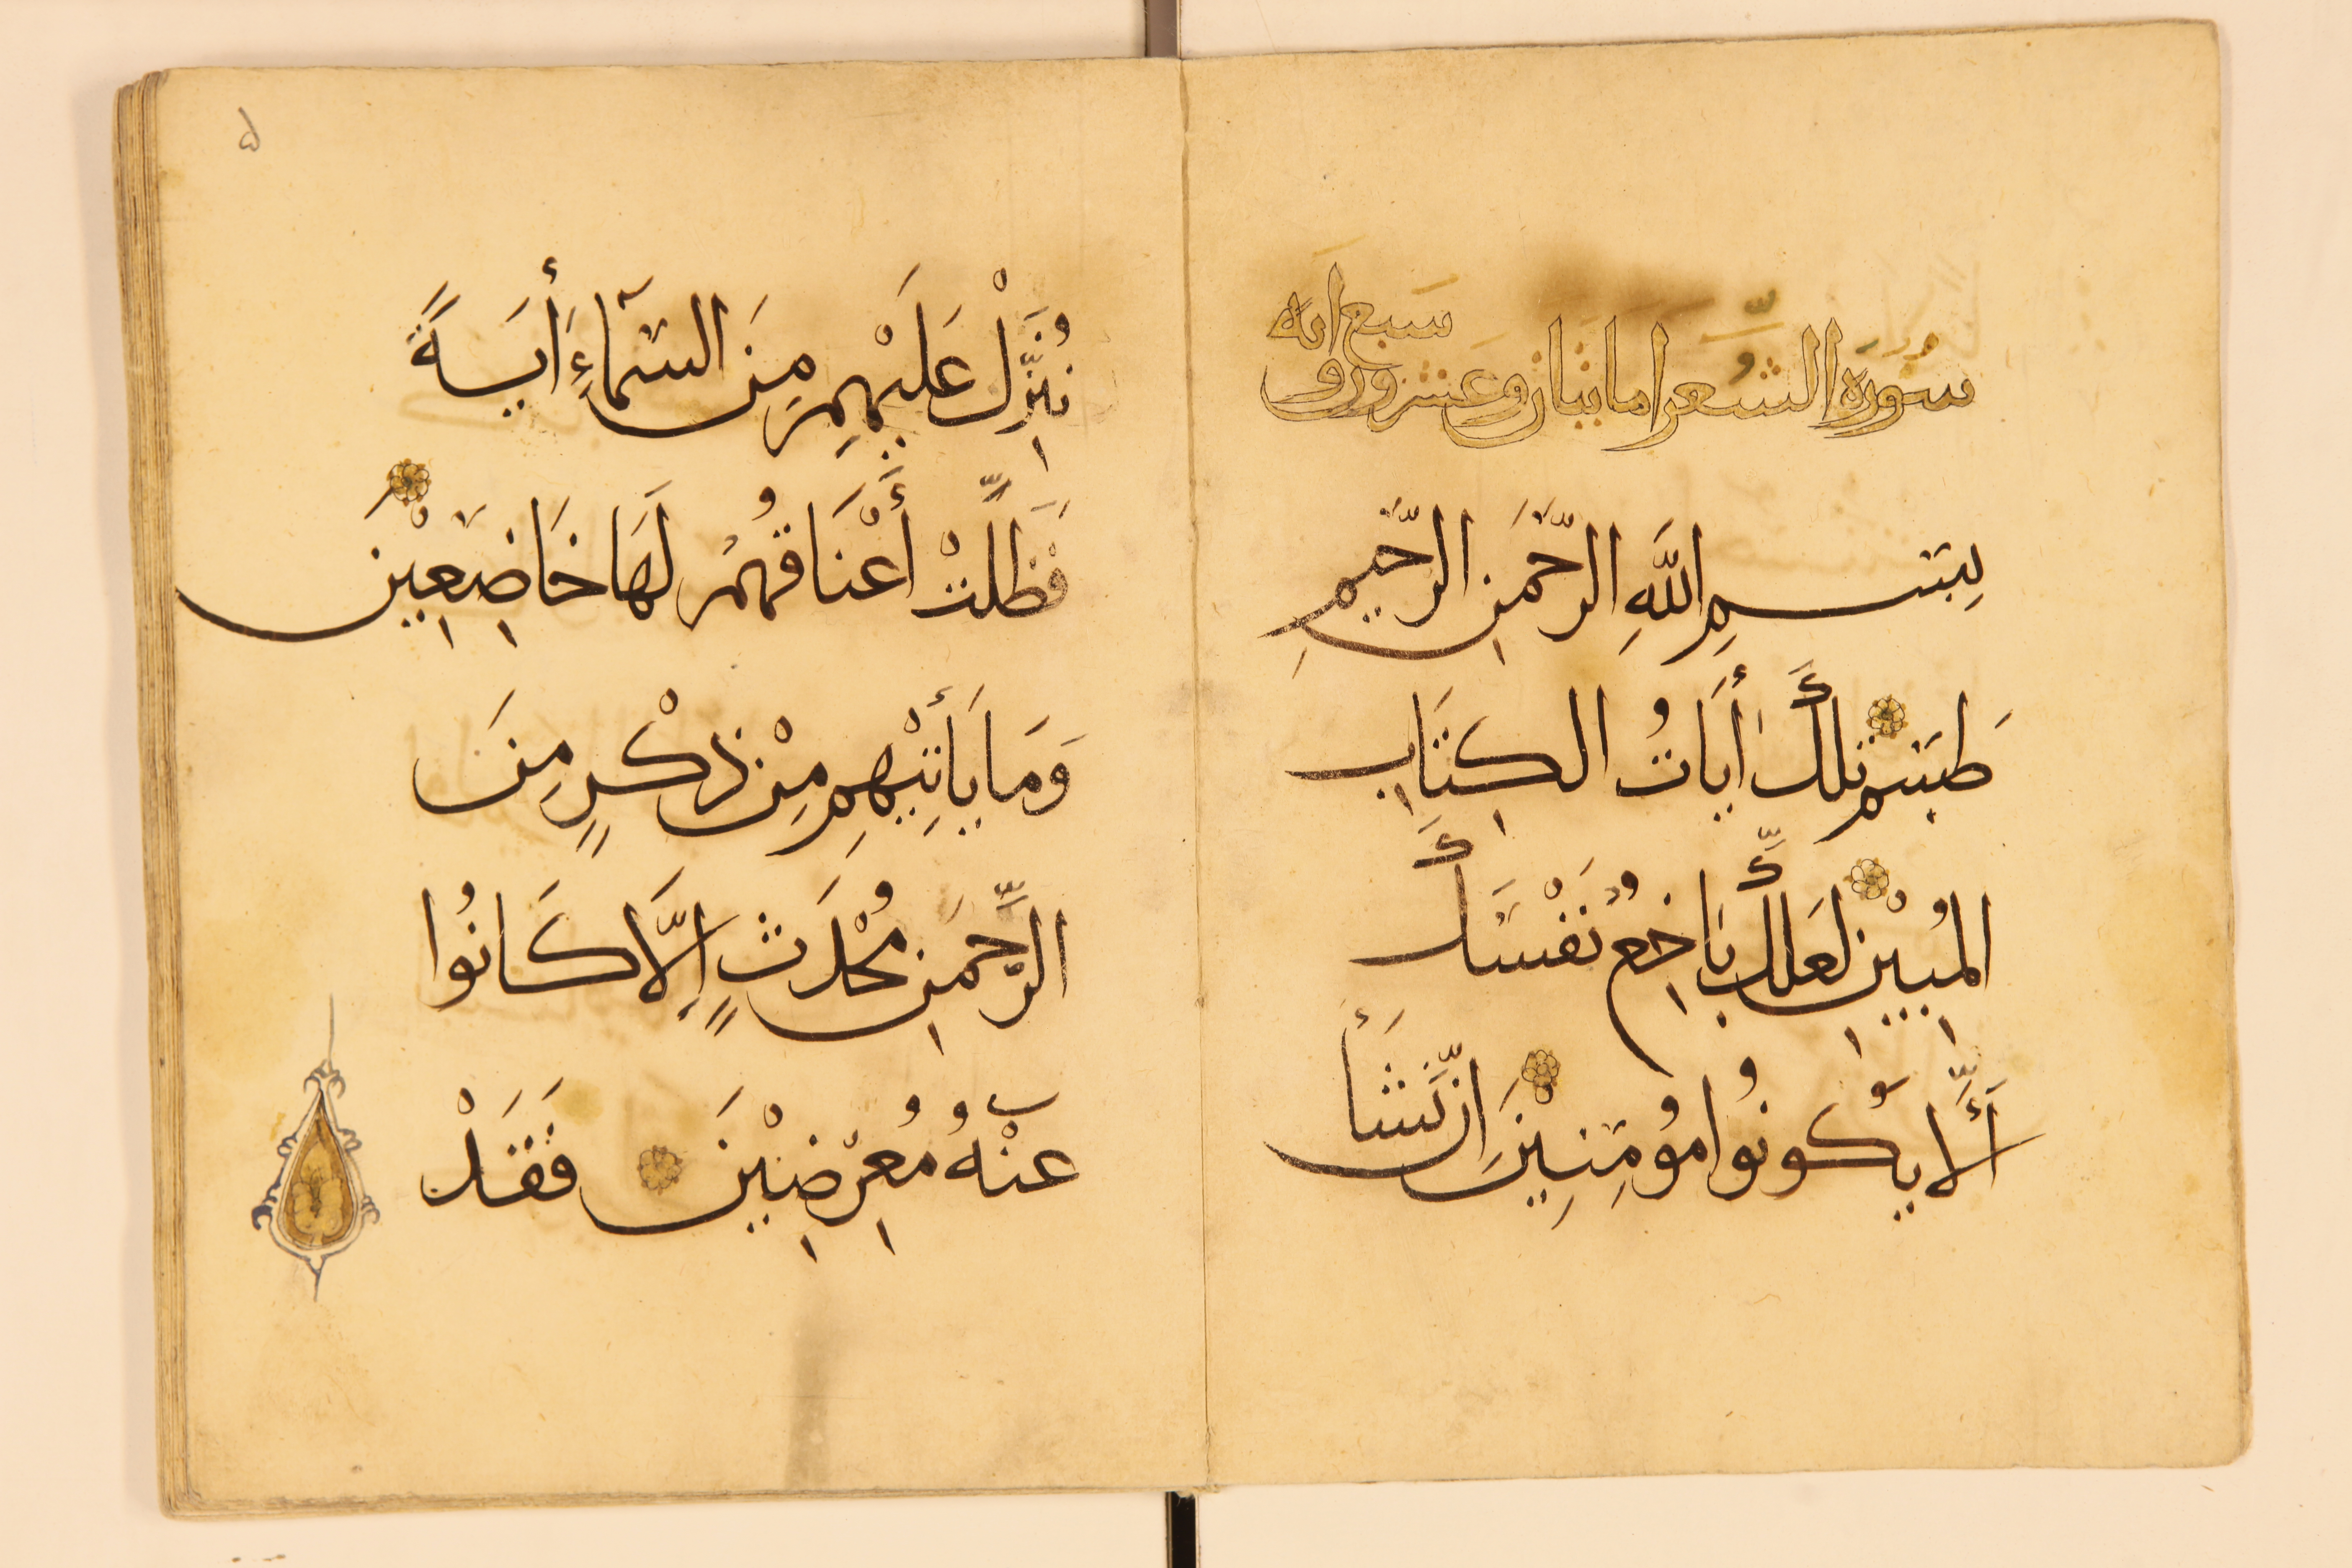 سورة الشعرا ماىتان وعشرون
سبع ايه
بِسْمِ اللَّهِ الرَّحْمَنِ الرَّحِيمِ
طسم تِلْكَ أَيَاتُ الكِتَابِ
المُبِيْنِ لَعَلَّكَ بَاخِعٌ نَفْسَكَ
أَلَّا يَكُونُوا مُؤمِنِيْنَ اِنْ نَّشَأْ
نُنَزِّلْ عَلَيْهِمْ مِنَ السَّمَآءِ أَيَةً
فَظَلَّتْ أَعْنَاقُهُمْ لَهَا خَاضِعِيْنَ
وَمَا يَأْتِيْهِمْ مِنْ ذِكْرٍ مِنَ
الرَّحْمَنِ مُحْدَثٍ اِلَّا كَانُوا
عَنْهُ مُعْرِضِيْنَ فَقَدْ
۵